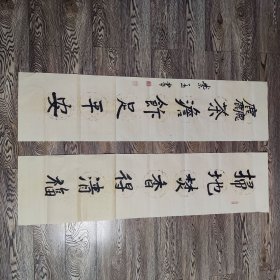 掃地焚香得清福
麤茶澹飯足平安